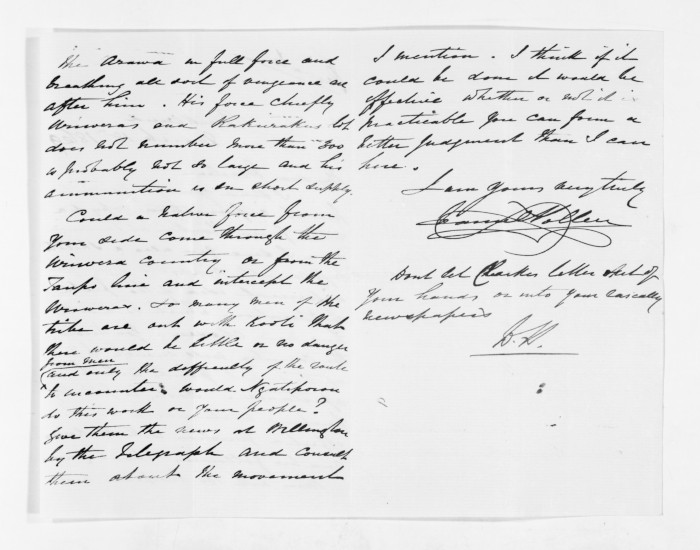 The Arawa in full force and
breathing all sort of vengeance are
after him. His force chiefly
Uriweras and Kakurakus but
does not number more than 300
is probably not so large and his
ammunition is in short supply.
Could a Native force from
Your side come through the
Uriwera country or from the
Taupo line and intercept the
Uriweras. So many men of the
tribe are out with Kooti that
there would be little or no danger
from men
and only the difficulty of the route
to encounter. would Ngatiporou
do this work or your people?
Give them the news at Wellington
by the Telegraph and consult
them about the movement
I mention. I think if it
could be done it would be
effective whether or not it is
practicable You can form a
better judgment than I can
here.
I am Yours very truly
Daniel Pollen
Dont let Clarkes letter out of
Your hands or into your rascally
newspapers
D.P.